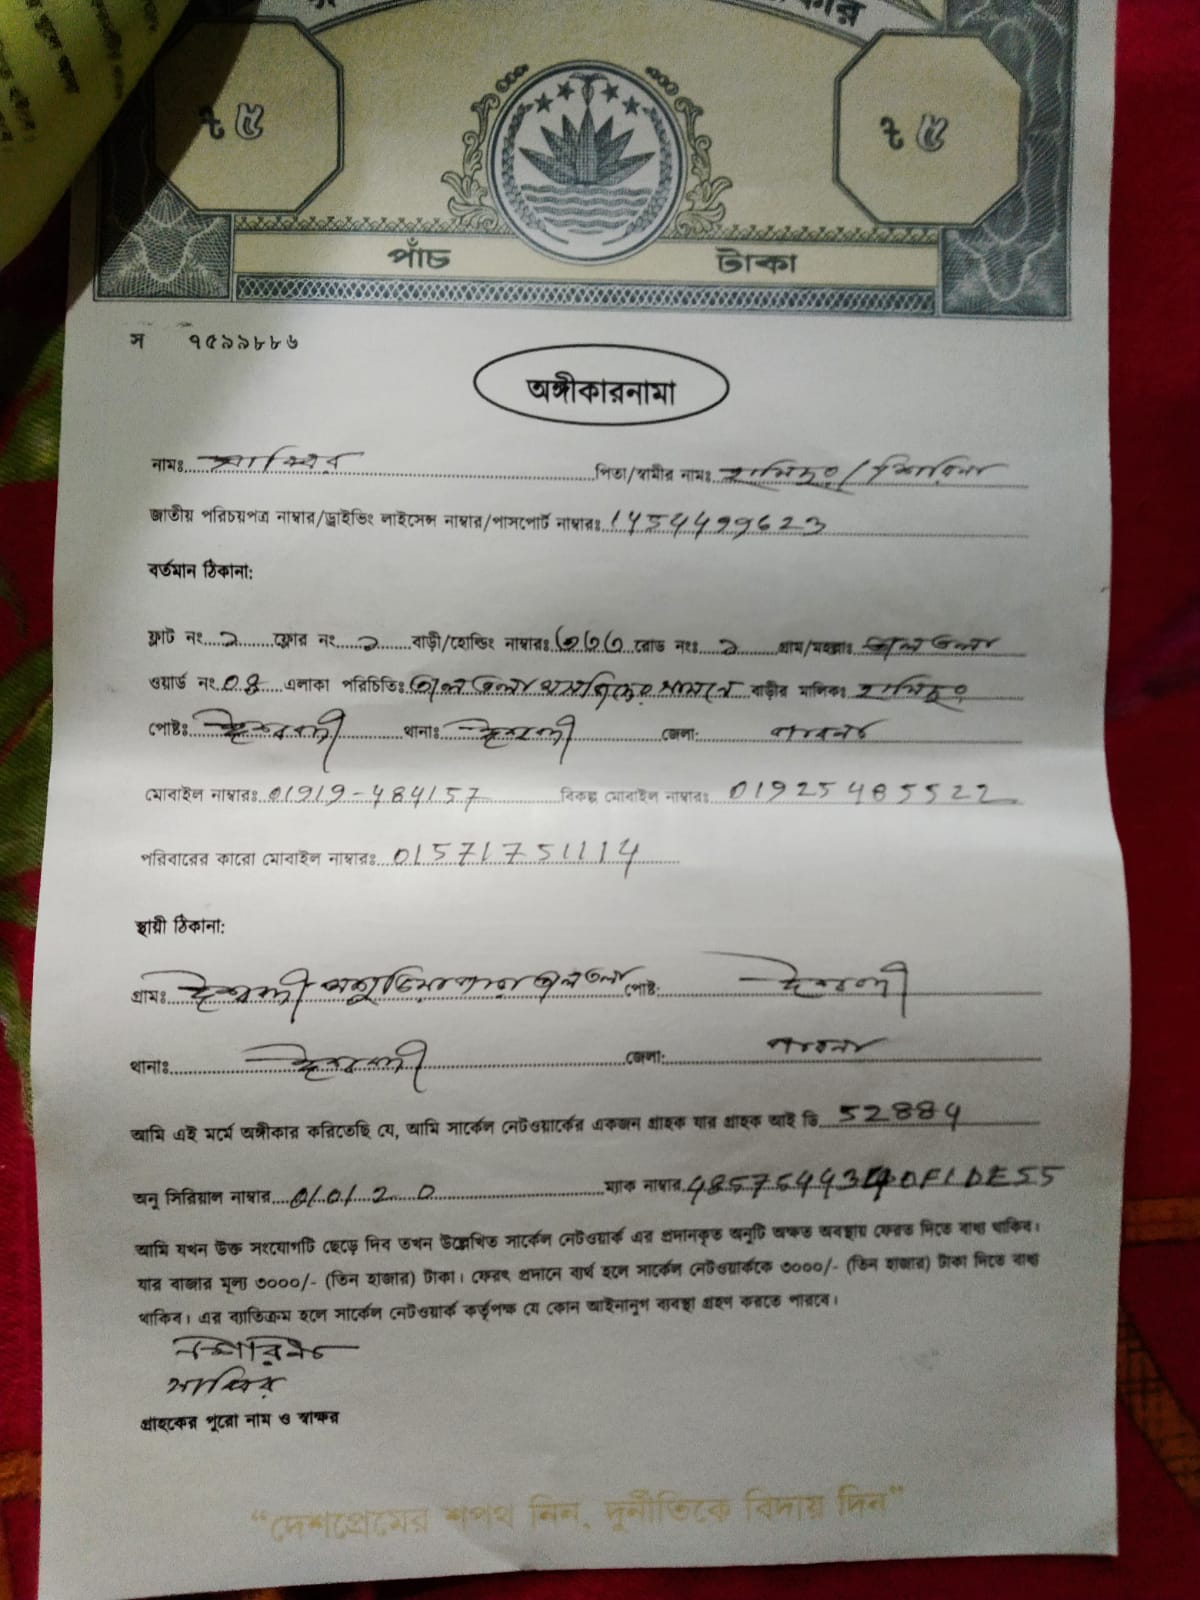 ৳ ৫ ৳ ৫
পাঁচ টাকা
স ৭৫৯৯৮৮৬
অঙ্গীকারনামা
নামঃ সাব্বির পিতা/স্বামীর নামঃ হামিদুর / শিরিনা
জাতীয় পরিচয়পত্র নাম্বার/ড্রাইভিং লাইসেন্স নাম্বার/পাসপোর্ট নাম্বারঃ
বর্তমান ঠিকানা:
ফ্লাট নং ফ্লোর নং বাড়ী/হোল্ডিং নাম্বারঃ রোড নংঃ গ্রাম/মহল্লাঃ তালতলা
ওয়ার্ড নং 04 এলাকা পরিচিতিঃ তালতলা মসজিদের সামনে বাড়ীর মালিকঃ হামিদুর
পোষ্টঃ ঈশ্বরদী থানাঃ ঈশ্বরদী জেলা: পাবনা
মোবাইল নাম্বারঃ 01919-484157 বিকল্প মোবাইল নাম্বারঃ 01925485522
পরিবারের কারো মোবাইল নাম্বারঃ 01571751114
স্থায়ী ঠিকানা:
গ্রামঃ ঈশ্বরদী তালতলা পোষ্ট: ঈশ্বরদী
থানাঃ ঈশ্বরদী জেলা: পাবনা
আমি এই মর্মে অঙ্গীকার করিতেছি যে, আমি সার্কেল নেটওয়ার্কের একজন গ্রাহক যার গ্রাহক আই ডি 52884
অনু সিরিয়াল নাম্বার ম্যাক নাম্বার
আমি যখন উক্ত সংযোগটি ছেড়ে দিব তখন উল্লেখিত সার্কেল নেটওয়ার্ক এর প্রদানকৃত অনুটি অক্ষত অবস্থায় ফেরত দিতে বাধ্য থাকিব।
যার বাজার মূল্য ৩০০০/- (তিন হাজার) টাকা। ফেরৎ প্রদানে ব্যর্থ হলে সার্কেল নেটওয়ার্ককে ৩০০০/- (তিন হাজার) টাকা দিতে বাধ্য
থাকিব। এর ব্যাতিক্রম হলে সার্কেল নেটওয়ার্ক কর্তৃপক্ষ যে কোন আইনানুগ ব্যবস্থা গ্রহণ করতে পারবে।
শিরিনা
সাব্বির
গ্রাহকের পুরো নাম ও স্বাক্ষর
“দেশপ্রেমের শপথ নিন, দুর্নীতিকে বিদায় দিন”